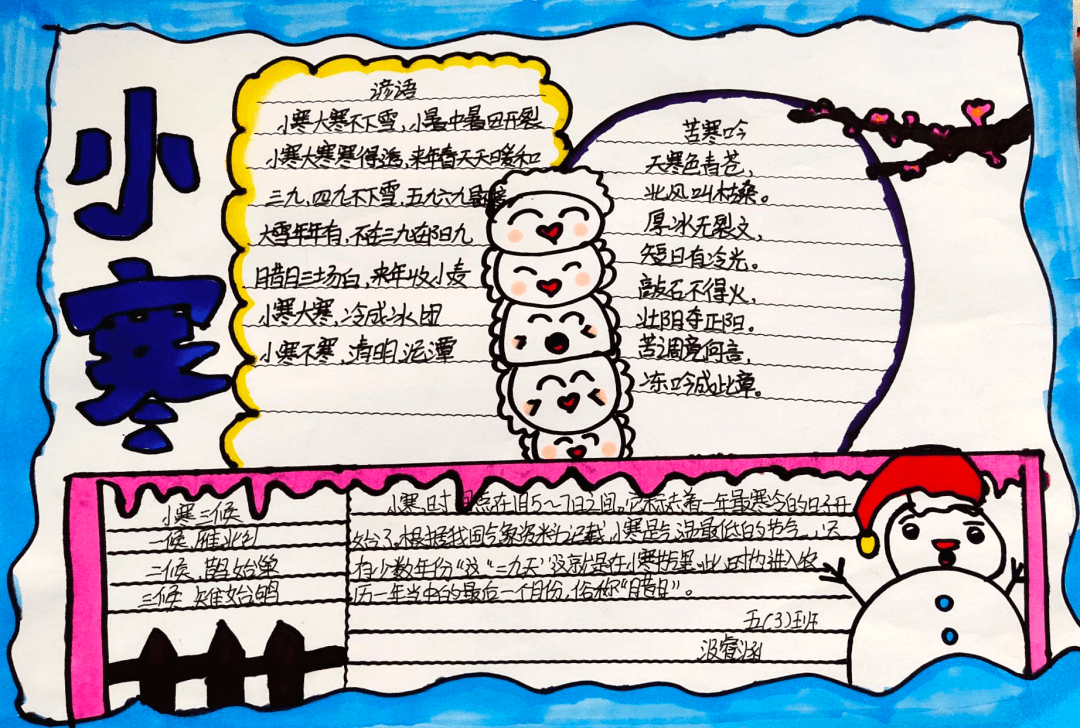 小寒
谚语
小寒大寒不下雪，小暑中暑田开裂
小寒大寒寒得透，来年春天天日暖和
三九，四九不下雪，五九六九
大雪年年有，不在三九在阳九
月昔日三场白，来年收小麦
小寒大寒，冷成冰团
小寒不寒，清明泥潭
苦寒吟
天寒色青苍，
北风叫枯桑。
厚冰无裂文，
短日有冷光。
敲石不得火，
壮阴夺正阳。
苦调竟何言，
冻吟成此章。
小寒三候
一候，雁北
二候，鹊始巢
三候 雉始鸲
小寒时间点在1月5～7日之间，它标志着一年最寒冷的日子开
始了。根据我国气象资料记载，小寒是气温最低的节气，
有少数年份“这“三九天”这就是在小寒节里，此时也进入农
历一年当中的最后一个月份，俗称“月昔日”。
五(3)班
汲睿涵